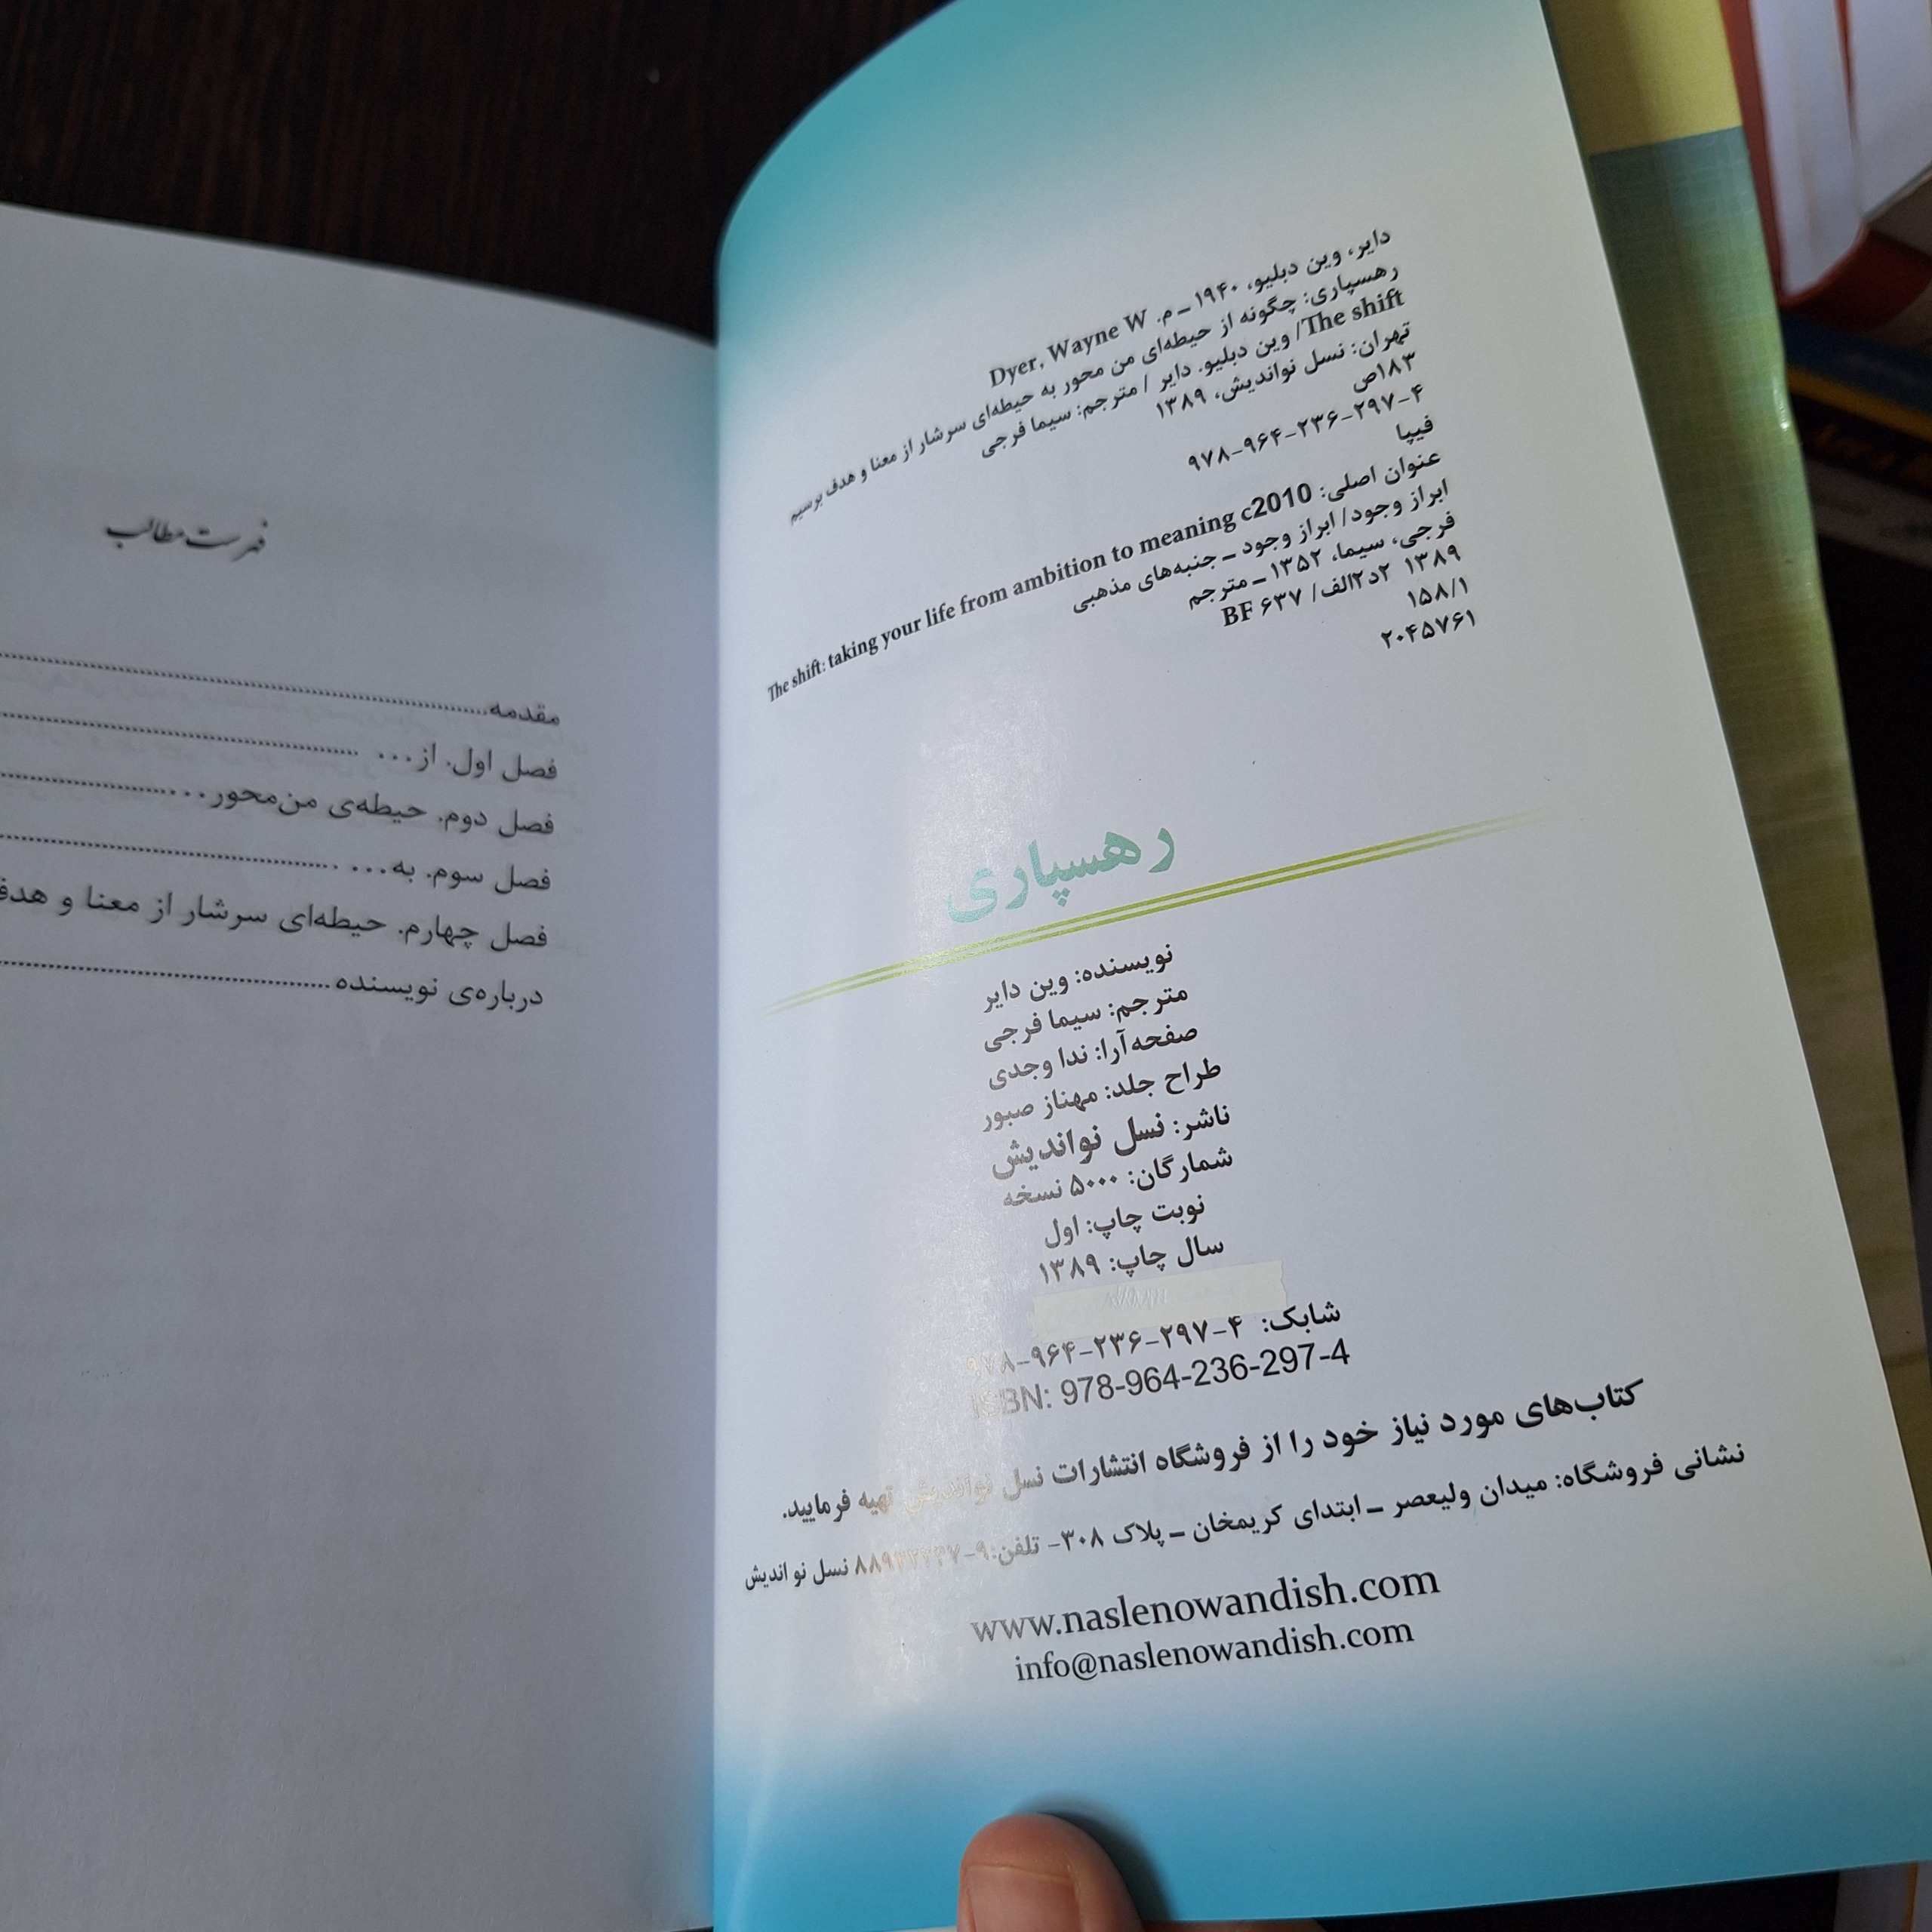 دایر، وین دبلیو، ۱۹۴۰ ـ م. Dyer, Wayne W
رهسپاری: چگونه از حیطه‌ای من محور به حیطه‌ای سرشار از معنا و هدف برسیم
The shift/ وین دبلیو. دایر / مترجم: سیما فرجی
تهران: نسل نواندیش، ۱۳۸۹
۱۸۳ص
۹۷۸-۹۶۴-۲۳۶-۲۹۷-۴
فیپا
عنوان اصلی: The shift: taking your life from ambition to meaning c2010
ابراز وجود/ ابراز وجود ـ جنبه‌های مذهبی
فرجی، سیما، ۱۳۵۲ ـ مترجم
۱۳۸۹ ۲د۲الف/ ۶۳۷ BF
۱۵۸/۱
۲۰۴۵۷۶۱
رهسپاری
نویسنده: وین دایر
مترجم: سیما فرجی
صفحه‌آرا: ندا وجدی
طراح جلد: مهناز صبور
ناشر: نسل نواندیش
شمارگان: ۵۰۰۰ نسخه
نوبت چاپ: اول
سال چاپ: ۱۳۸۹
شابک: ۹۷۸-۹۶۴-۲۳۶-۲۹۷-۴
ISBN: 978-964-236-297-4
کتاب‌های مورد نیاز خود را از فروشگاه انتشارات نسل نواندیش تهیه فرمایید.
نشانی فروشگاه: میدان ولیعصر ـ ابتدای کریمخان ـ پلاک ۳۰۸- تلفن: نسل نو اندیش
www.naslenowandish.com
info@naslenowandish.com
فهرست مطالب
مقدمه
فصل اول. از...
فصل دوم. حیطه‌ی من‌محور...
فصل سوم. به...
فصل چهارم. حیطه‌ای سرشار از معنا و هدف
درباره‌ی نویسنده